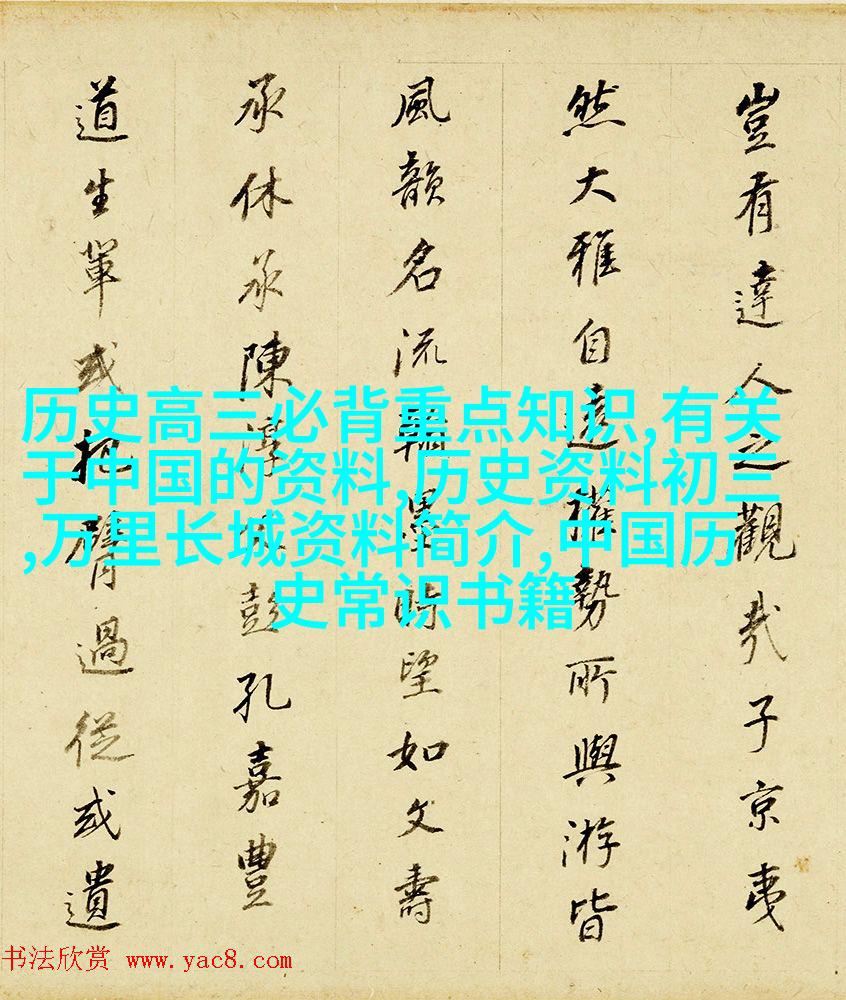 豈有達人之觀哉子京夷
然大雅自遠權勢所與游皆
風韻名流翰墨時望如文壽
承休承陳淳彭孔嘉豐
道生輩或把臂過從或遺
历史高三必背重点知识,有关
于中国的资料,历史资料初三
,万里长城资料简介,中国历
史常识书籍
书法欣赏 www.yac8.com